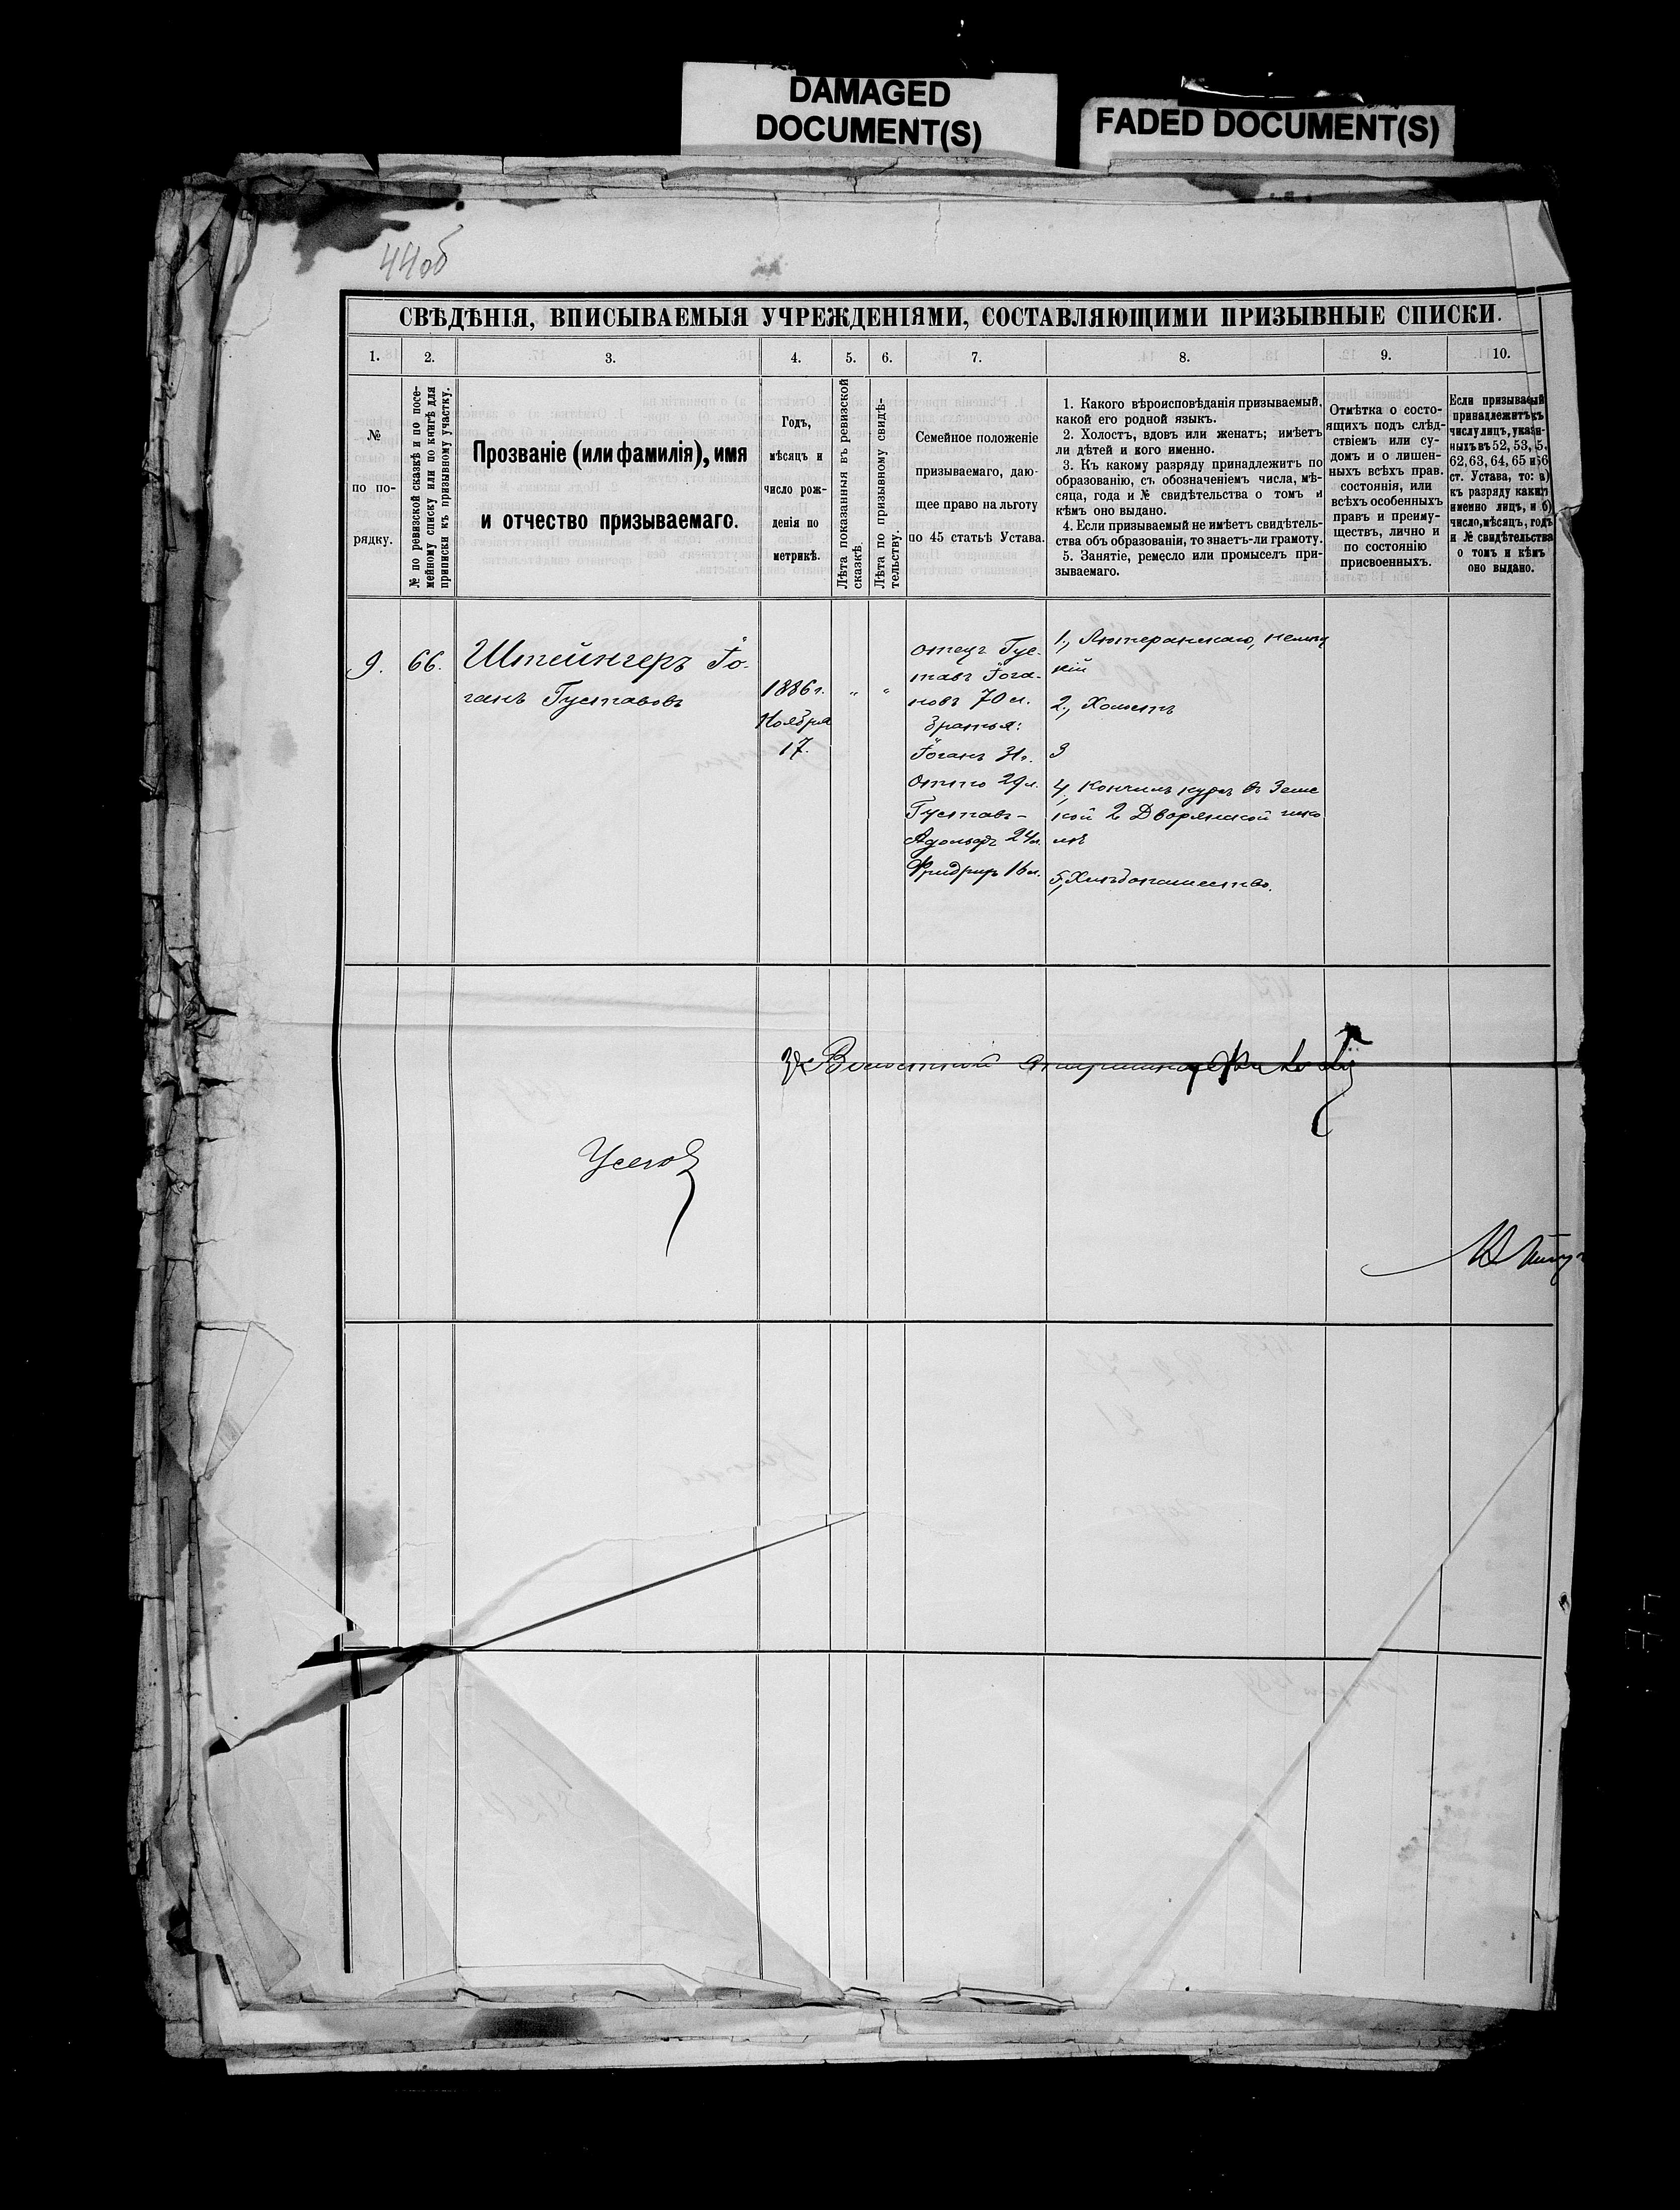 DAMAGED
DOCUMENT(S)
FADED DOCUMENT(S)
44об
СВѢДѢНІЯ, ВПИСЫВАЕМЫЯ УЧРЕЖДЕНІЯМИ, СОСТАВЛЯЮЩИМИ ПРИЗЫВНЫЕ СПИСКИ.
1.
2.
3.
4.
5.
6.
7.
8.
9.
10.
№
по по-
рядку.
№ по ревизской сказкѣ и по посе-
мейному списку или по книгѣ для
приписки къ призывному участку.
Прозваніе (или фамилія), имя
и отчество призываемаго.
Годъ,
мѣсяцъ и
число рож-
денія по
метрикѣ.
Лѣта показанныя въ ревизской
сказкѣ.
Лѣта по призывному свидѣ-
тельству.
Семейное положеніе
призываемаго, даю-
щее право на льготу
по 45 статьѣ Устава.
1. Какого вѣроисповѣданія призываемый,
какой его родной языкъ.
2. Холостъ, вдовъ или женатъ; имѣетъ
ли дѣтей и кого именно.
3. Къ какому разряду принадлежитъ по
образованію, съ обозначеніемъ числа, мѣ-
сяца, года и № свидѣтельства о томъ и
кѣмъ оно выдано.
4. Если призываемый не имѣетъ свидѣтель-
ства объ образованіи, то знаетъ-ли грамоту.
5. Занятіе, ремесло или промыселъ при-
зываемаго.
Отмѣтка о состо-
ящихъ подъ слѣд-
ствіемъ или су-
домъ и о лишен-
ныхъ всѣхъ прав.
состоянія, или
всѣхъ особенныхъ
правъ и преиму-
ществъ, лично и
по состоянію
присвоенныхъ.
Если призываемый
принадлежитъ къ
числу лицъ, указан-
ныхъ въ 52, 53, 5.
62, 63, 64, 65 и 66
ст. Устава, то: а)
къ разряду какихъ
именно лицъ, и б)
число, мѣсяцъ, годъ
и № свидѣтельства
о томъ и кѣмъ
оно выдано.
9.
66.
Штейнгеръ Іо-
ганъ Густавовъ
1886 г.
Ноября
17.
"
"
отецъ Гус-
тавъ Іога-
новъ 70 л.
братья:
Іоганъ 31 г.
Отто 29 л.
Густавъ-
Адольфъ 24 л.
Фридрихъ 16 л.
1., Лютеранскаго, немец
кій
2., Холостъ
3
4., Кончилъ курсъ въ Земс
кой 2 Дворянской шко
лѣ
5., Хлѣбопашество.
Волостной Старшина